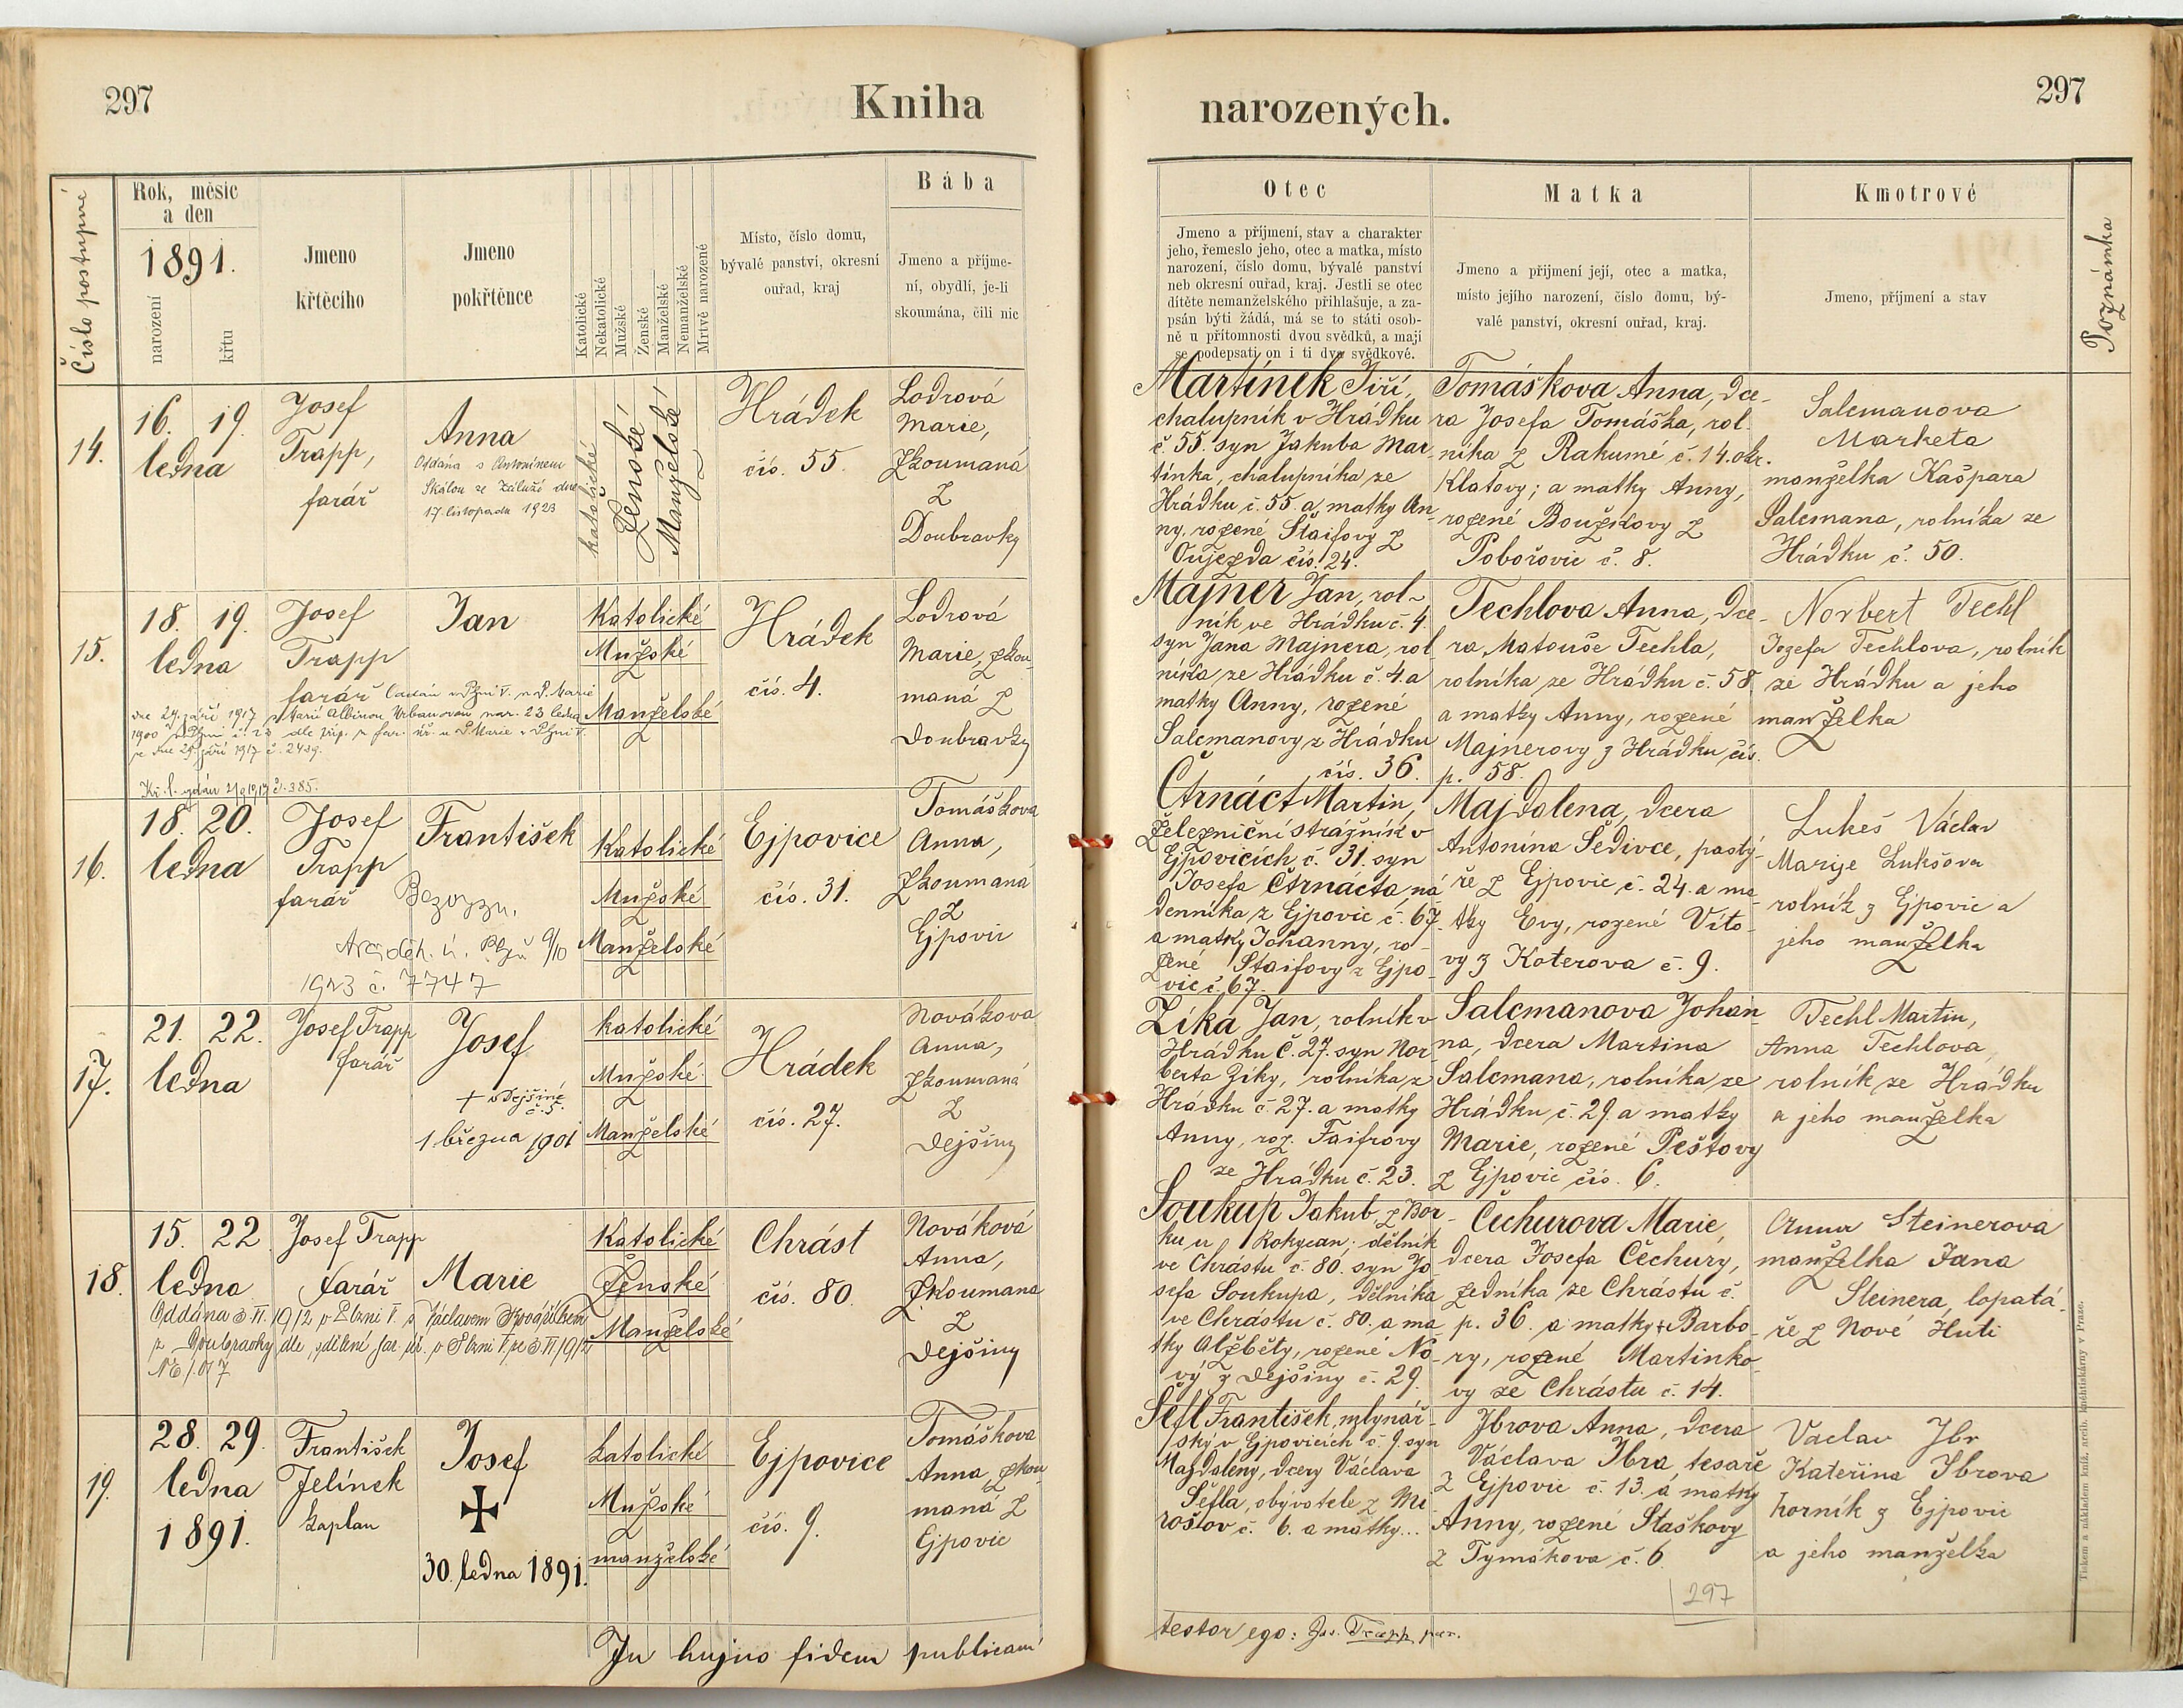 297
Kniha
narozených.
297
Číslo postupné
Rok, měsíc
a den
1891.
narození
křtu
Jmeno
křtěcího
Jmeno
pokřtěnce
Katolické
Nekatolické
Mužské
Ženské
Manželské
Nemanželské
Mrtvě narozené
Místo, číslo domu,
bývalé panství, okresní
ouřad, kraj
Bába
Jmeno a příjme-
ní, obydlí, je-li
skoumána, čili nic
Otec
Jmeno a příjmení, stav a charakter
jeho, řemeslo jeho, otec a matka, místo
narození, číslo domu, bývalé panství
neb okresní ouřad, kraj. Jestli se otec
dítěte nemanželského přihlašuje, a za-
psán býti žádá, má se to státi osob-
ně u přítomnosti dvou svědků, a mají
se podepsati on i ti dva svědkové.
Matka
Jmeno a přijmení její, otec a matka,
místo jejího narození, číslo domu, bý-
valé panství, okresní ouřad, kraj.
Kmotrové
Jmeno, příjmení a stav
Poznámka
14.
16. 19.
ledna
Josef
Trapp,
farář
Anna
Oddána s Antonínem
Skálou ze Záluží dne
17. listopadu 1923
katolické
Ženské
Manželské
Hrádek
čís. 55.
Lodrová
Marie,
zkoumaná
z
Doubravky
Martínek Jiří,
chalupník v Hrádku
č. 55. syn Jakuba Mar-
tínka, chalupníka ze
Hrádku č. 55. a matky An-
ny, rozené Štaifovy z
Oujezda čís. 24.
Tomáškova Anna, dce-
ra Josefa Tomáška, rol-
níka z Rakumé č. 14. okr.
Klatovy; a matky Anny,
rozené Bouzkovy z
Pobořovic č. 8.
Salcmanova
Marketa
manželka Kašpara
Salcmana, rolníka ze
Hrádku č. 50.
15.
18. 19.
ledna
Josef
Trapp
farář
Oddán v Plzni V. u P. Marie
dne 24. září 1917 s Marií Albinou Urbanovou nar. 23 ledna
1900 v Plzni č. 23 dle příp. z far. úř. u P. Marie v Plzni V.
ze dne 29. září 1917 č. 2439.
Jan
Katolické
Mužské
Manželské
Hrádek
čís. 4.
Lodrová
Marie, zkou-
maná z
Doubravky
Majner Jan, rol-
ník ve Hrádku č. 4.
syn Jana Majnera, rol-
níka ze Hrádku č. 4. a
matky Anny, rozené
Salcmanovy z Hrádku
čís. 36.
Techlova Anna, dce-
ra Matouše Techla,
rolníka ze Hrádku č. 58
a matky Anny, rozené
Majnerovy z Hrádku čís.
p. 58.
Norbert Techl
Jozefa Techlova, rolník
ze Hrádku a jeho
manželka
16.
18. 20.
ledna
Josef
Trapp
farář
František
Bezvyzn.
Plzeň 9/10
1923 č. 7747
Katolické
Mužské
Manželské
Ejpovice
čís. 31.
Tomáškova
Anna,
zkoumaná
z
Ejpovic
Čtrnáct Martin,
železniční strážník v
Ejpovicích č. 31. syn
Josefa Čtrnácta, ná-
denníka z Ejpovic č. 67.
a matky Johanny, ro-
zené Štaifovy z Ejpo-
vic č. 67.
Majdalena, dcera
Antonína Šedivce, pastý-
ře z Ejpovic č. 24. a ma-
tky Evy, rozené Víto-
vy z Koterova č. 9.
Lukeš Václav
Marije Lukšova
rolník z Ejpovic a
jeho manželka
17.
21. 22.
ledna
Josef Trapp
farář
Josef
+ v Dejšiné
č. 5.
1. března 1901
katolické
Mužské
Manželské
Hrádek
čís. 27.
Nováková
Anna,
zkoumaná
z
Dejšiny
Zíka Jan, rolník v
Hrádku č. 27. syn Nor-
berta Zíky, rolníka z
Hrádku č. 27. a matky
Anny, roz. Faifrovy
ze Hrádku č. 23.
Salcmanova Johan-
na, dcera Martina
Salcmana, rolníka ze
Hrádku č. 29. a matky
Marie, rozené Peštovy
z Ejpovic čís. 6.
Techl Martin,
Anna Techlova,
rolník ze Hrádku
a jeho manželka
18.
15. 22.
ledna
Josef Trapp
farář
Marie
Oddána 3 VI. 1912 v Plzni V. s Václavem
z Doubravky dle sdělení far. úř. v Plzni V. ze 3 VI 1912
NE 1017
Katolické
Ženské
Manželské
Chrást
čís. 80.
Nováková
Anna,
zkoumana
z
Dejšiny
Soukup Jakub, z Bor-
ku u Rokycan; dělník
ve Chrástu č. 80. syn Jo-
sefa Soukupa, dělníka
ve Chrástu č. 80. a ma-
tky Alžběty, rozené No-
vý z Dejšiny č. 29.
Čechurova Marie,
dcera Josefa Čechury,
zedníka ze Chrástu č.
p. 36. a matky + Barbo-
ry, rozené Martinko-
vy ze Chrástu č. 14.
Anna Steinerova
manželka Jana
Steinera, lopatá-
ře z Nové Huti
19.
28. 29.
ledna
1891.
František
Jelínek
kaplan
Josef
30. ledna 1891.
katolické
Mužské
manželské
Ejpovice
čís. 9.
Tomáškova
Anna, zkou-
maná z
Ejpovic
Šefl František, mlynář-
ský v Ejpovicích č. 9. syn
Majdaleny, dcery Václava
Šefla, obývatele z Mi-
rošlov č. 6. a matky...
Jbrova Anna, dcera
Václava Jbra, tesaře
z Ejpovic č. 13. a matky
Anny, rozené Staškovy
z Tymákova č. 6.
Vaclav Jbr
Kateřina Jbrova
horník z Ejpovic
a jeho manželka
297
In hujus fidem publicam
testor ego: Jos. Trapp par.